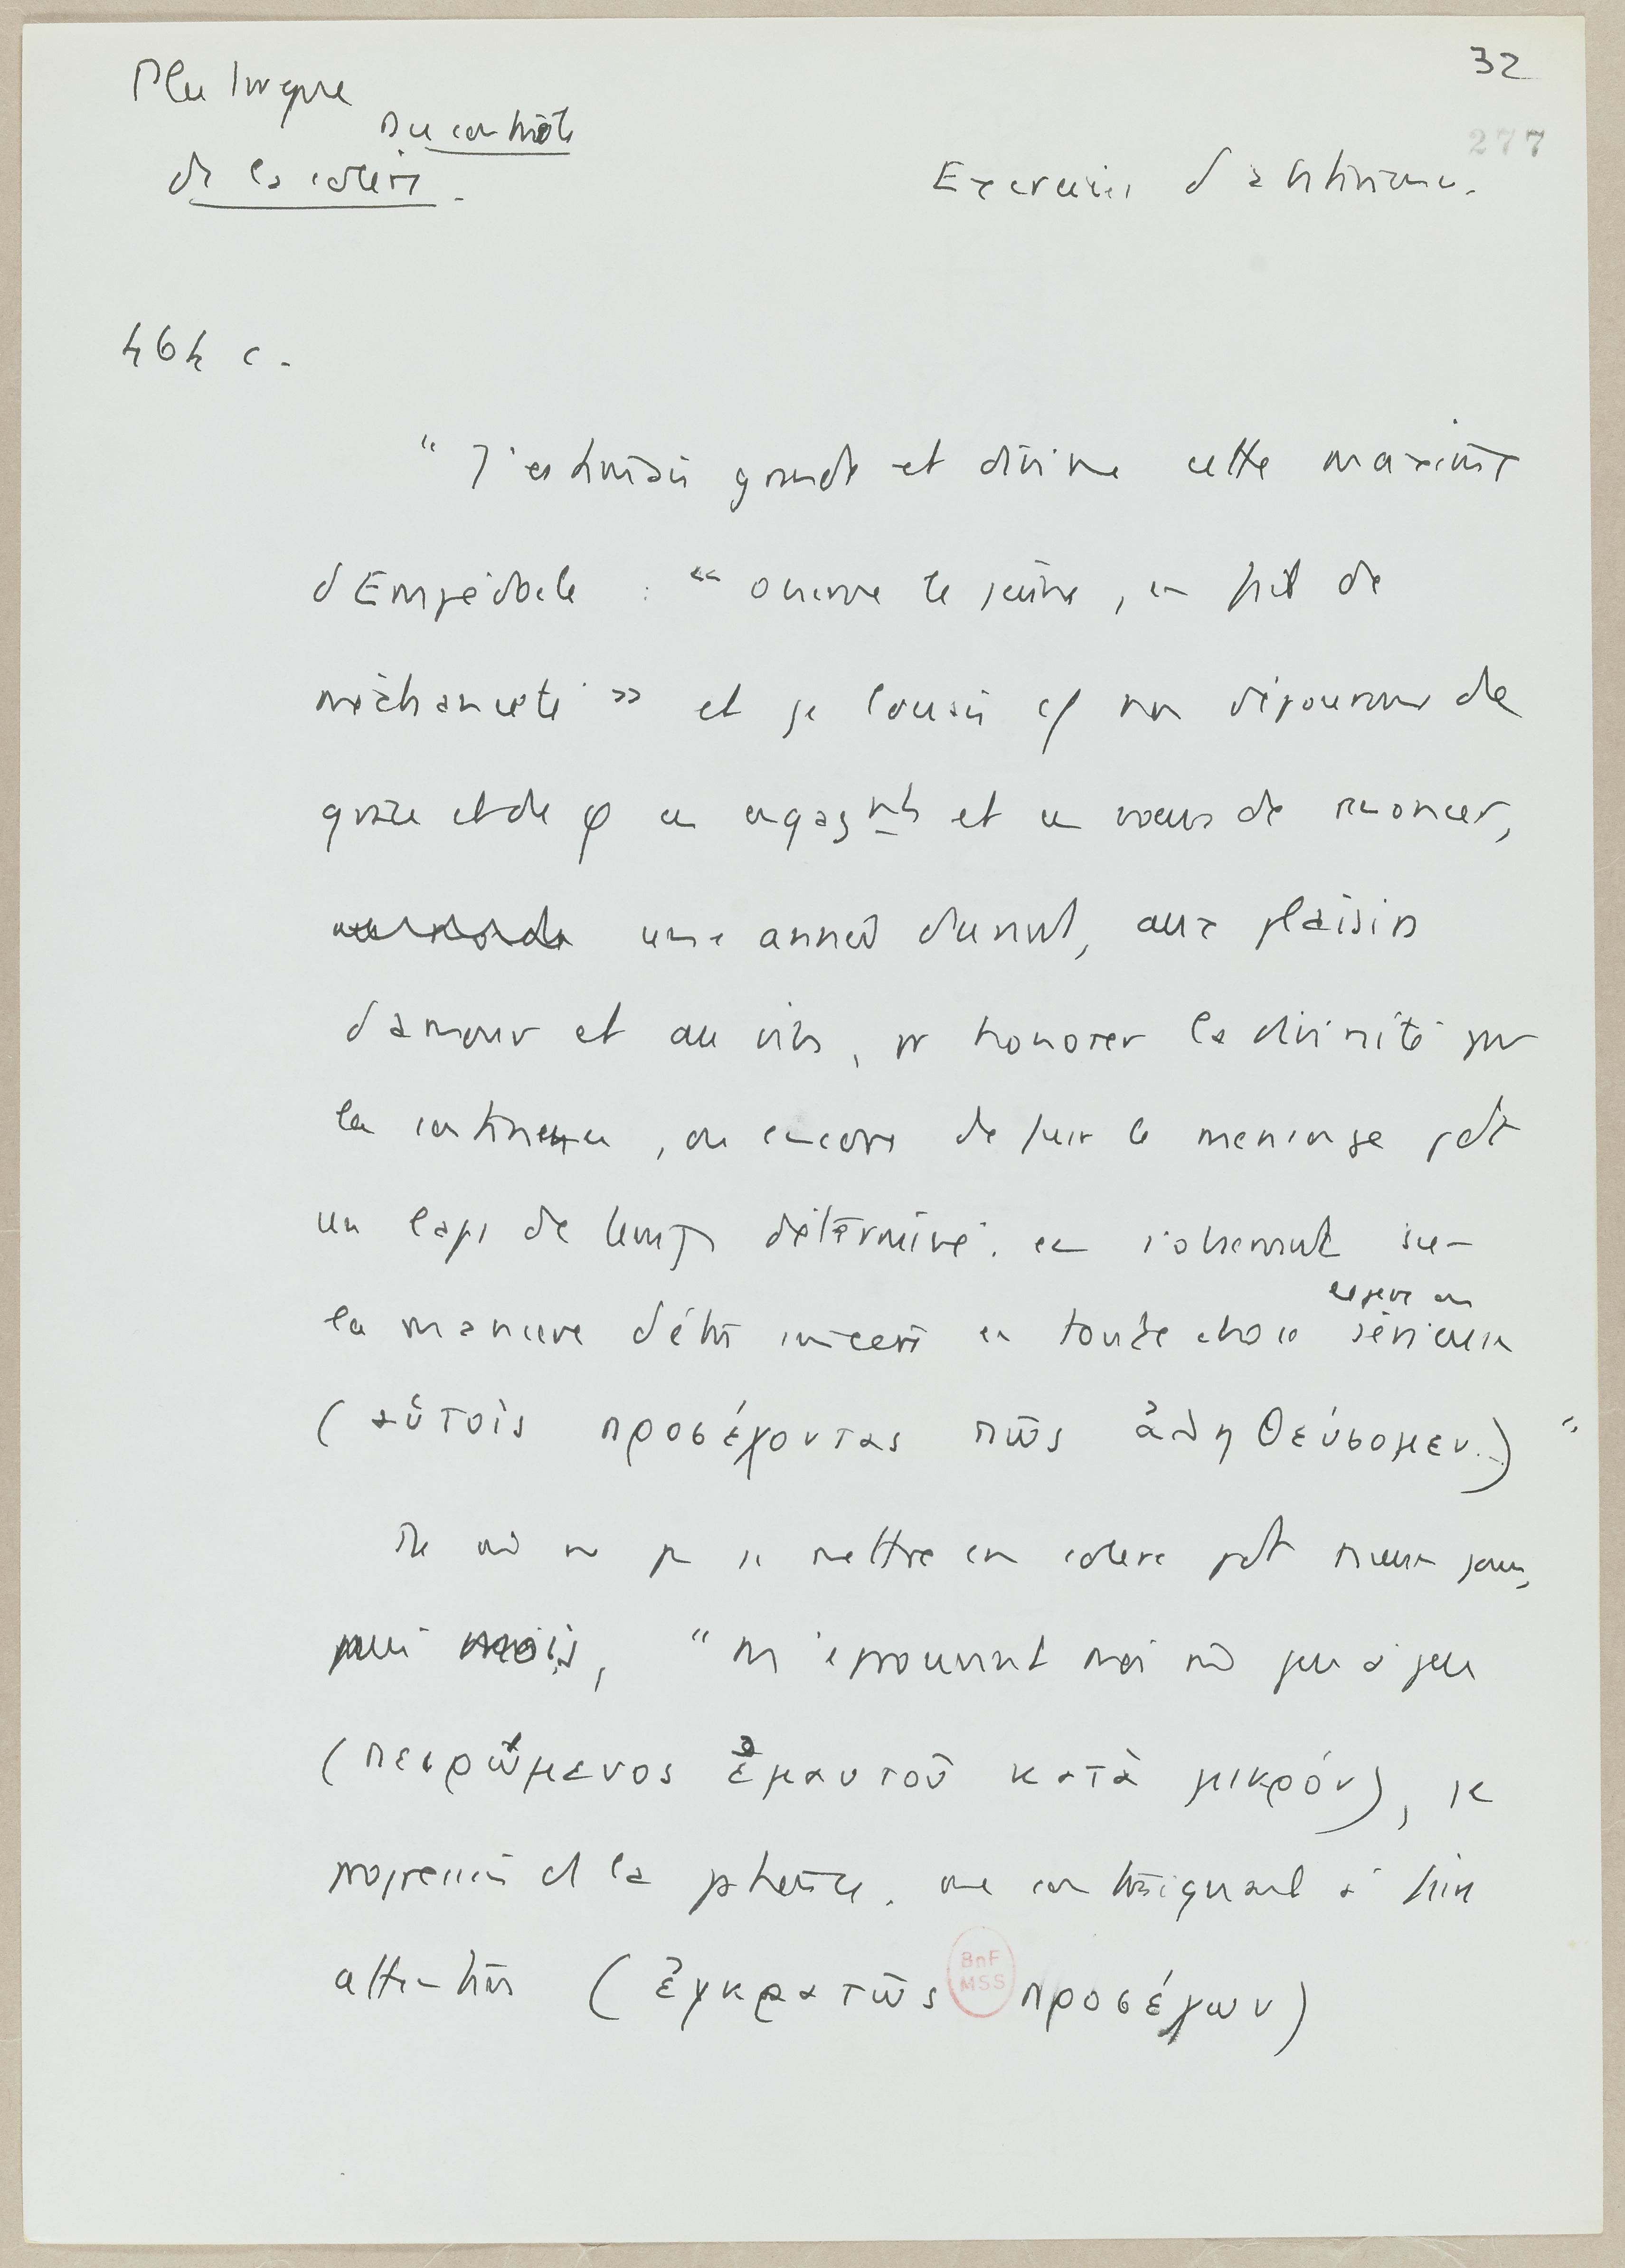 Plutarque
Du contrôle
de la colère.
32
277
Exercices d'abstinence.
464 c.
" J'estimais grande et divine cette maxime
d'Empédocle : « observe le jeûne, en fait de
méchanceté » et je louais cf non dépourvus de
grâce et de φ ces engagnts et ces vœux de renoncer,
une année durant, aux plaisirs
d'amour et au vin, pr honorer la divinité par
la continence, ou encore de fuir le mensonge pdt
un laps de temps déterminé. en s'observant sur
la manière d'être sincère en toute chose sérieuse
(αὑτοῖς προσέχοντας πῶς ἀληθεύσομεν.) "
De ne p se mettre en colère pdt deux jours,
puis mois, " m'éprouvant moi mê peu à peu
(πειρώμενος ἐμαυτοῦ κατὰ μικρόν), je
progressais ds la patience. me contraignant à faire
attention (ἐγκρατῶς προσέχων)
BnF
MSS